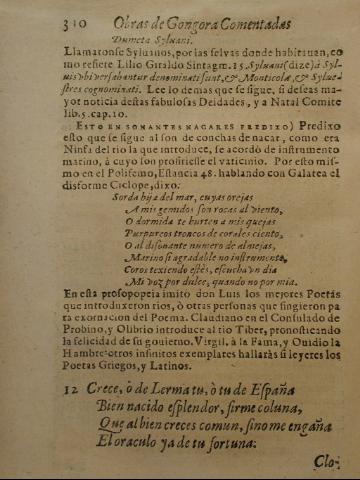 310 Obras de Gongora Comentadas
Dumeta Syluani.
Llamaronse Syluanos, por las selvas donde habitauan, co
mo refiere Lilio Giraldo Sintagm. 15 Syluani (dize) à Syl-
uis vbi versabantur denominati sunt, & Monticolæ, & Sylue-
stres cognominati. Lee lo demas que se sigue, si deseas ma-
yor noticia destas fabulosas Deidades, y a Natal Comite
lib. 5. cap. 10.
ESTO EN SONANTES NACARES PREDIXO) Predixo
esto que se sigue al son de conchas de nacar, como era
Ninfa del rio la que introduce, se acordò de instrumento
marino, à cuyo son profiriesse el vaticinio. Por esto mis-
mo en el Polifemo, Estancia 48. hablando con Galatea el
disforme Ciclope, dixo:
Sorda hija del mar, cuyas orejas
A mis gemidos son rocas al viento,
O dormida te hurten a mis quejas
Purpureos troncos de corales ciento,
O al disonante numero de almejas,
Marino si agradable no instrumento,
Coros texiendo estès, escucha vn dia
Mi voz por dulce, quando no por mia.
En esta prosopopeia imitò don Luis los mejores Poetas
que introduxeron rios, ò otras personas que fingieron pa
ra exornacion del Poema. Claudiano en el Consulado de
Probino, y Olibrio introduce al rio Tiber, pronosticando
la felicidad de su gouierno. Virgil. à la Fama, y Ouidio la
Hambre: otros infinitos exemplares hallaràs si leyeres los
Poetas Griegos, y Latinos.
12 Crece, ò de Lerma tu, ò tu de España
Bien nacido esplendor, firme coluna,
Que al bien creces comun, si no me engaña
El oraculo ya de tu fortuna:
Clo-